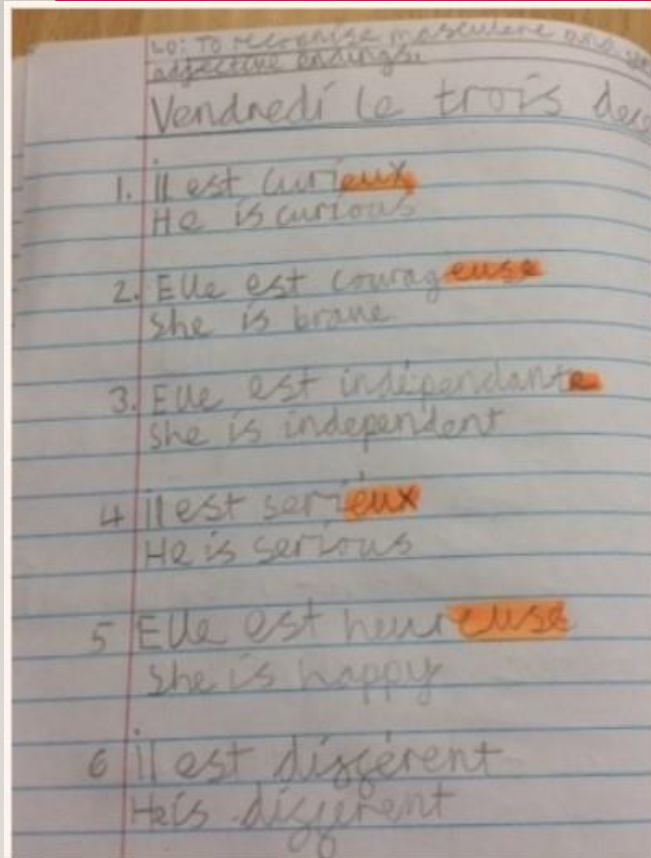 LO: To recognise masculine and
adjective endings.
Vendredi le trois
1. il est curieux
He is curious
2. Elle est courageuse
She is brave
3. Elle est indépendante
She is independent
4 il est serieux
He is serious
5 Elle est heureuse
She is happy
6 il est différent
He is different